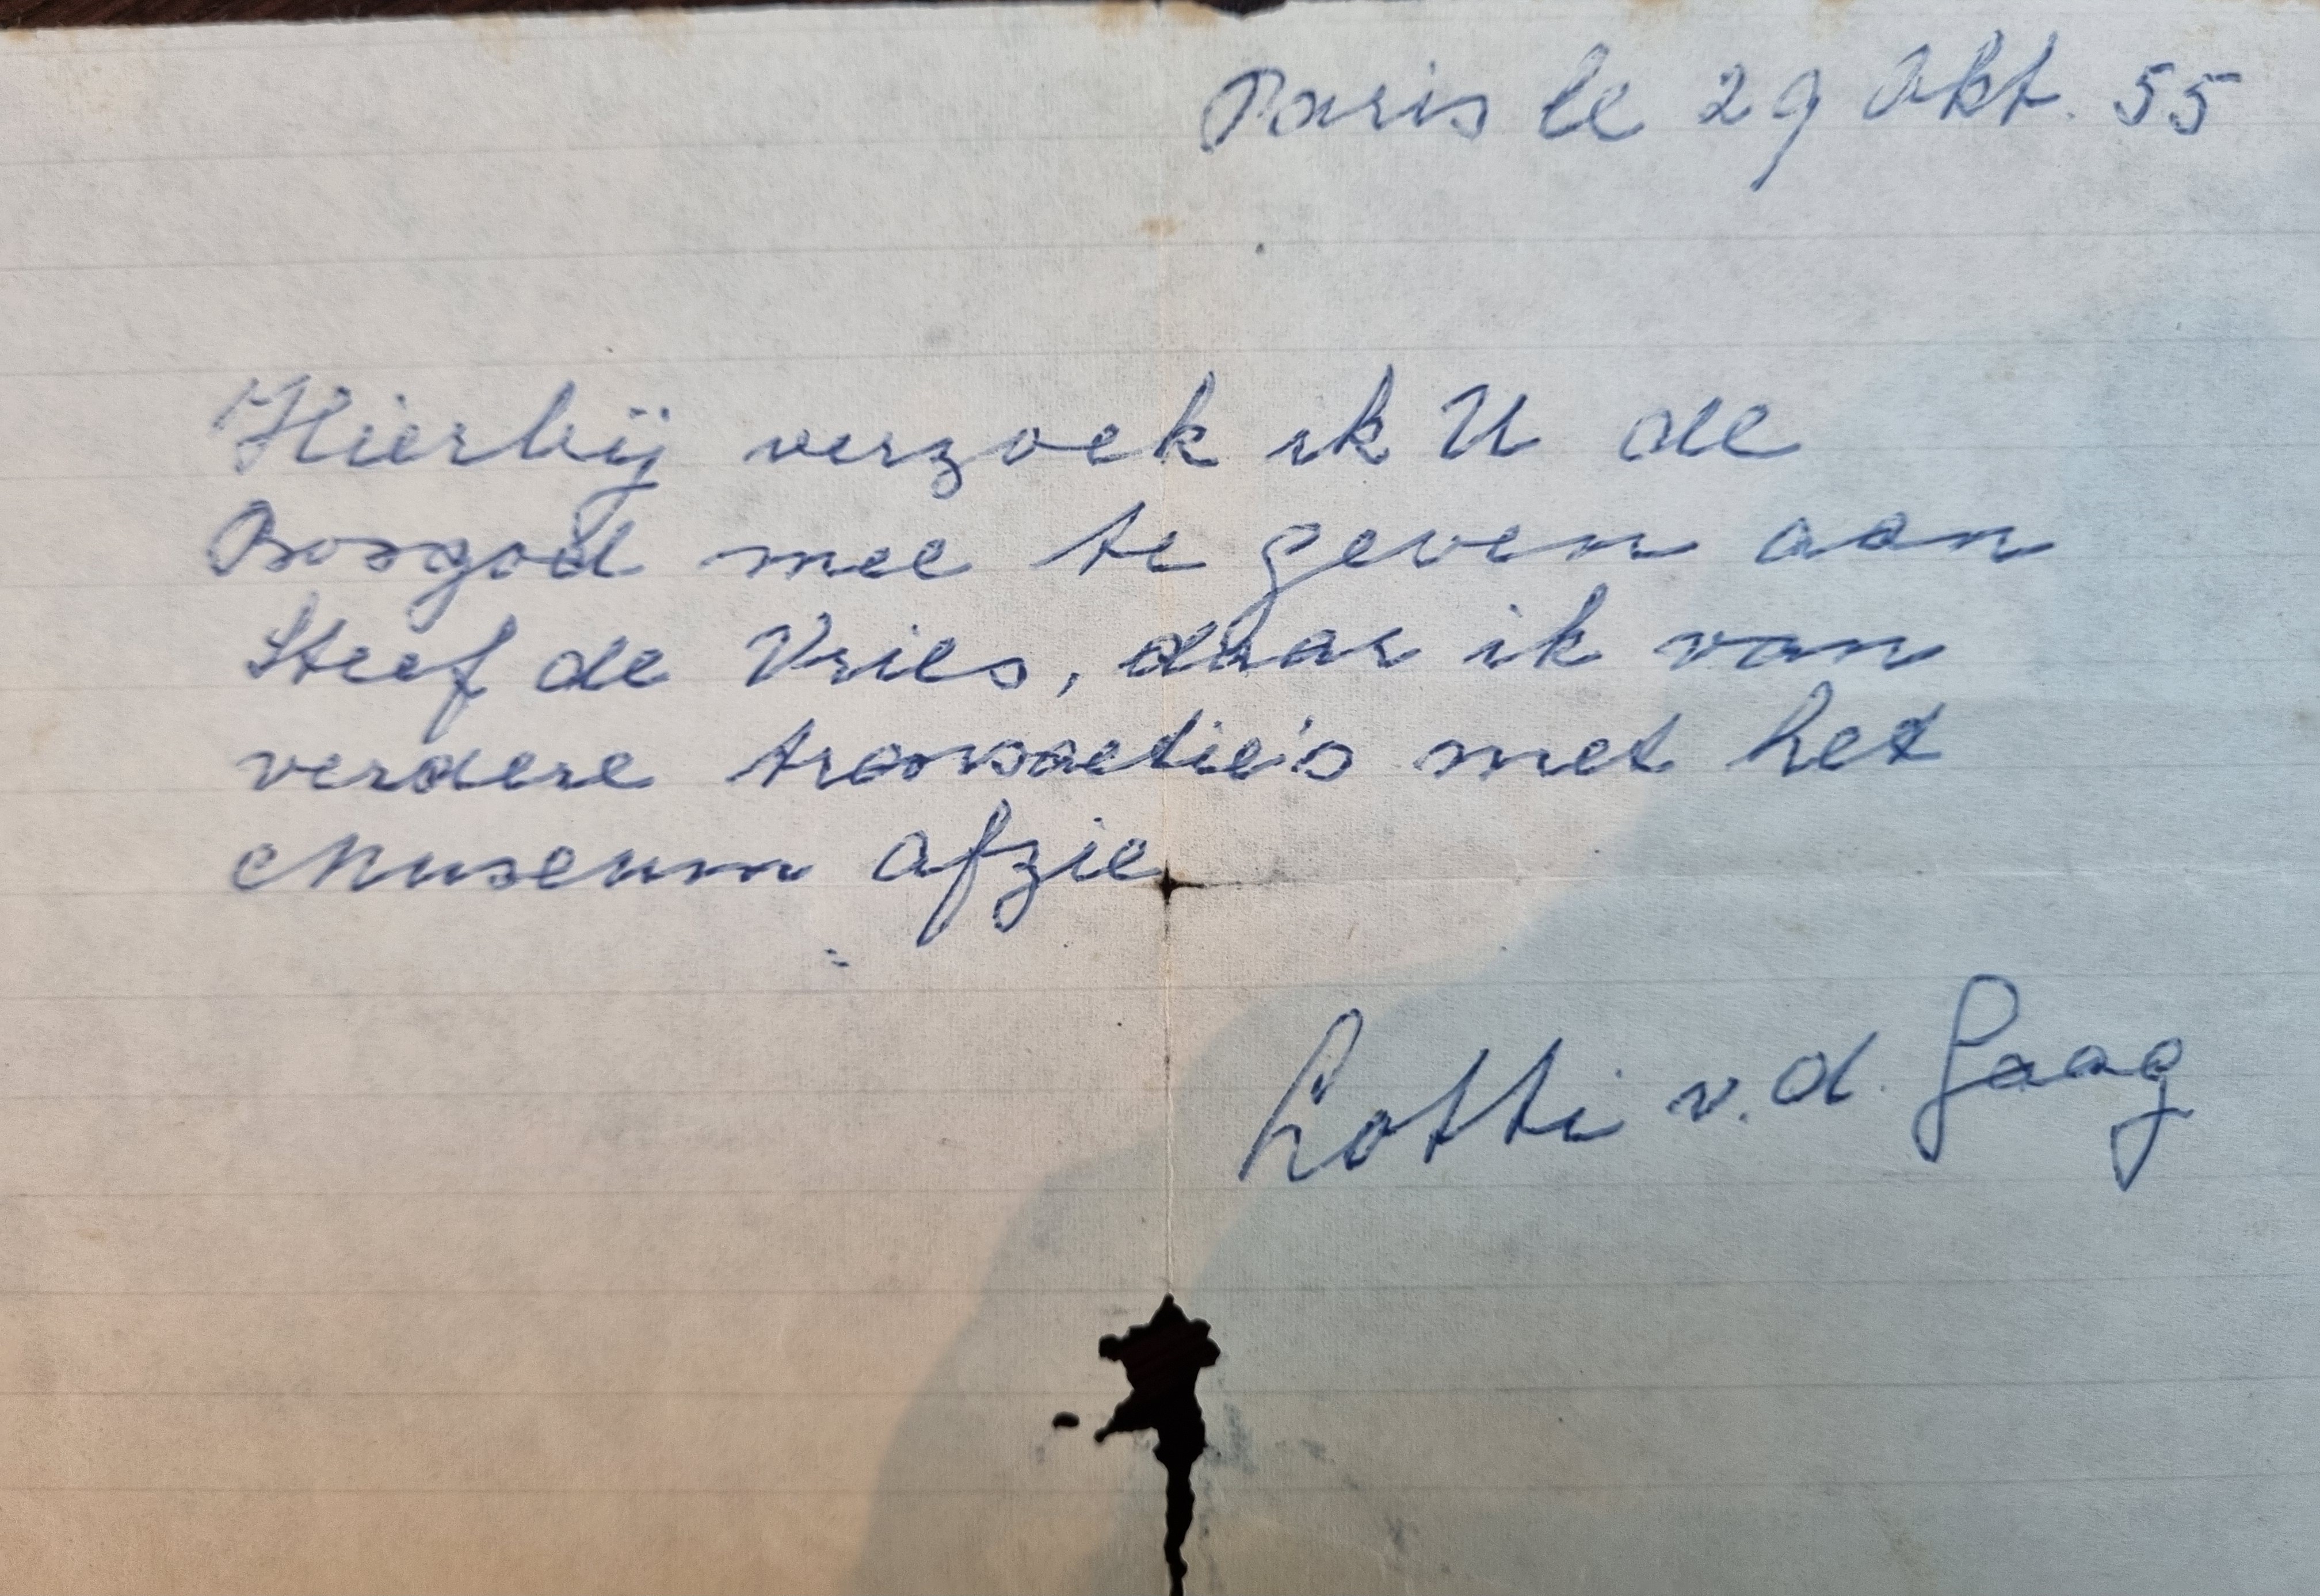 Paris le 29 Okt. 55
Hierbij verzoek ik U de
Bosgod mee te geven aan
Steef de Vries, daar ik van
verdere transactie's met het
Museum afzie
Lotti v.d. Gaag